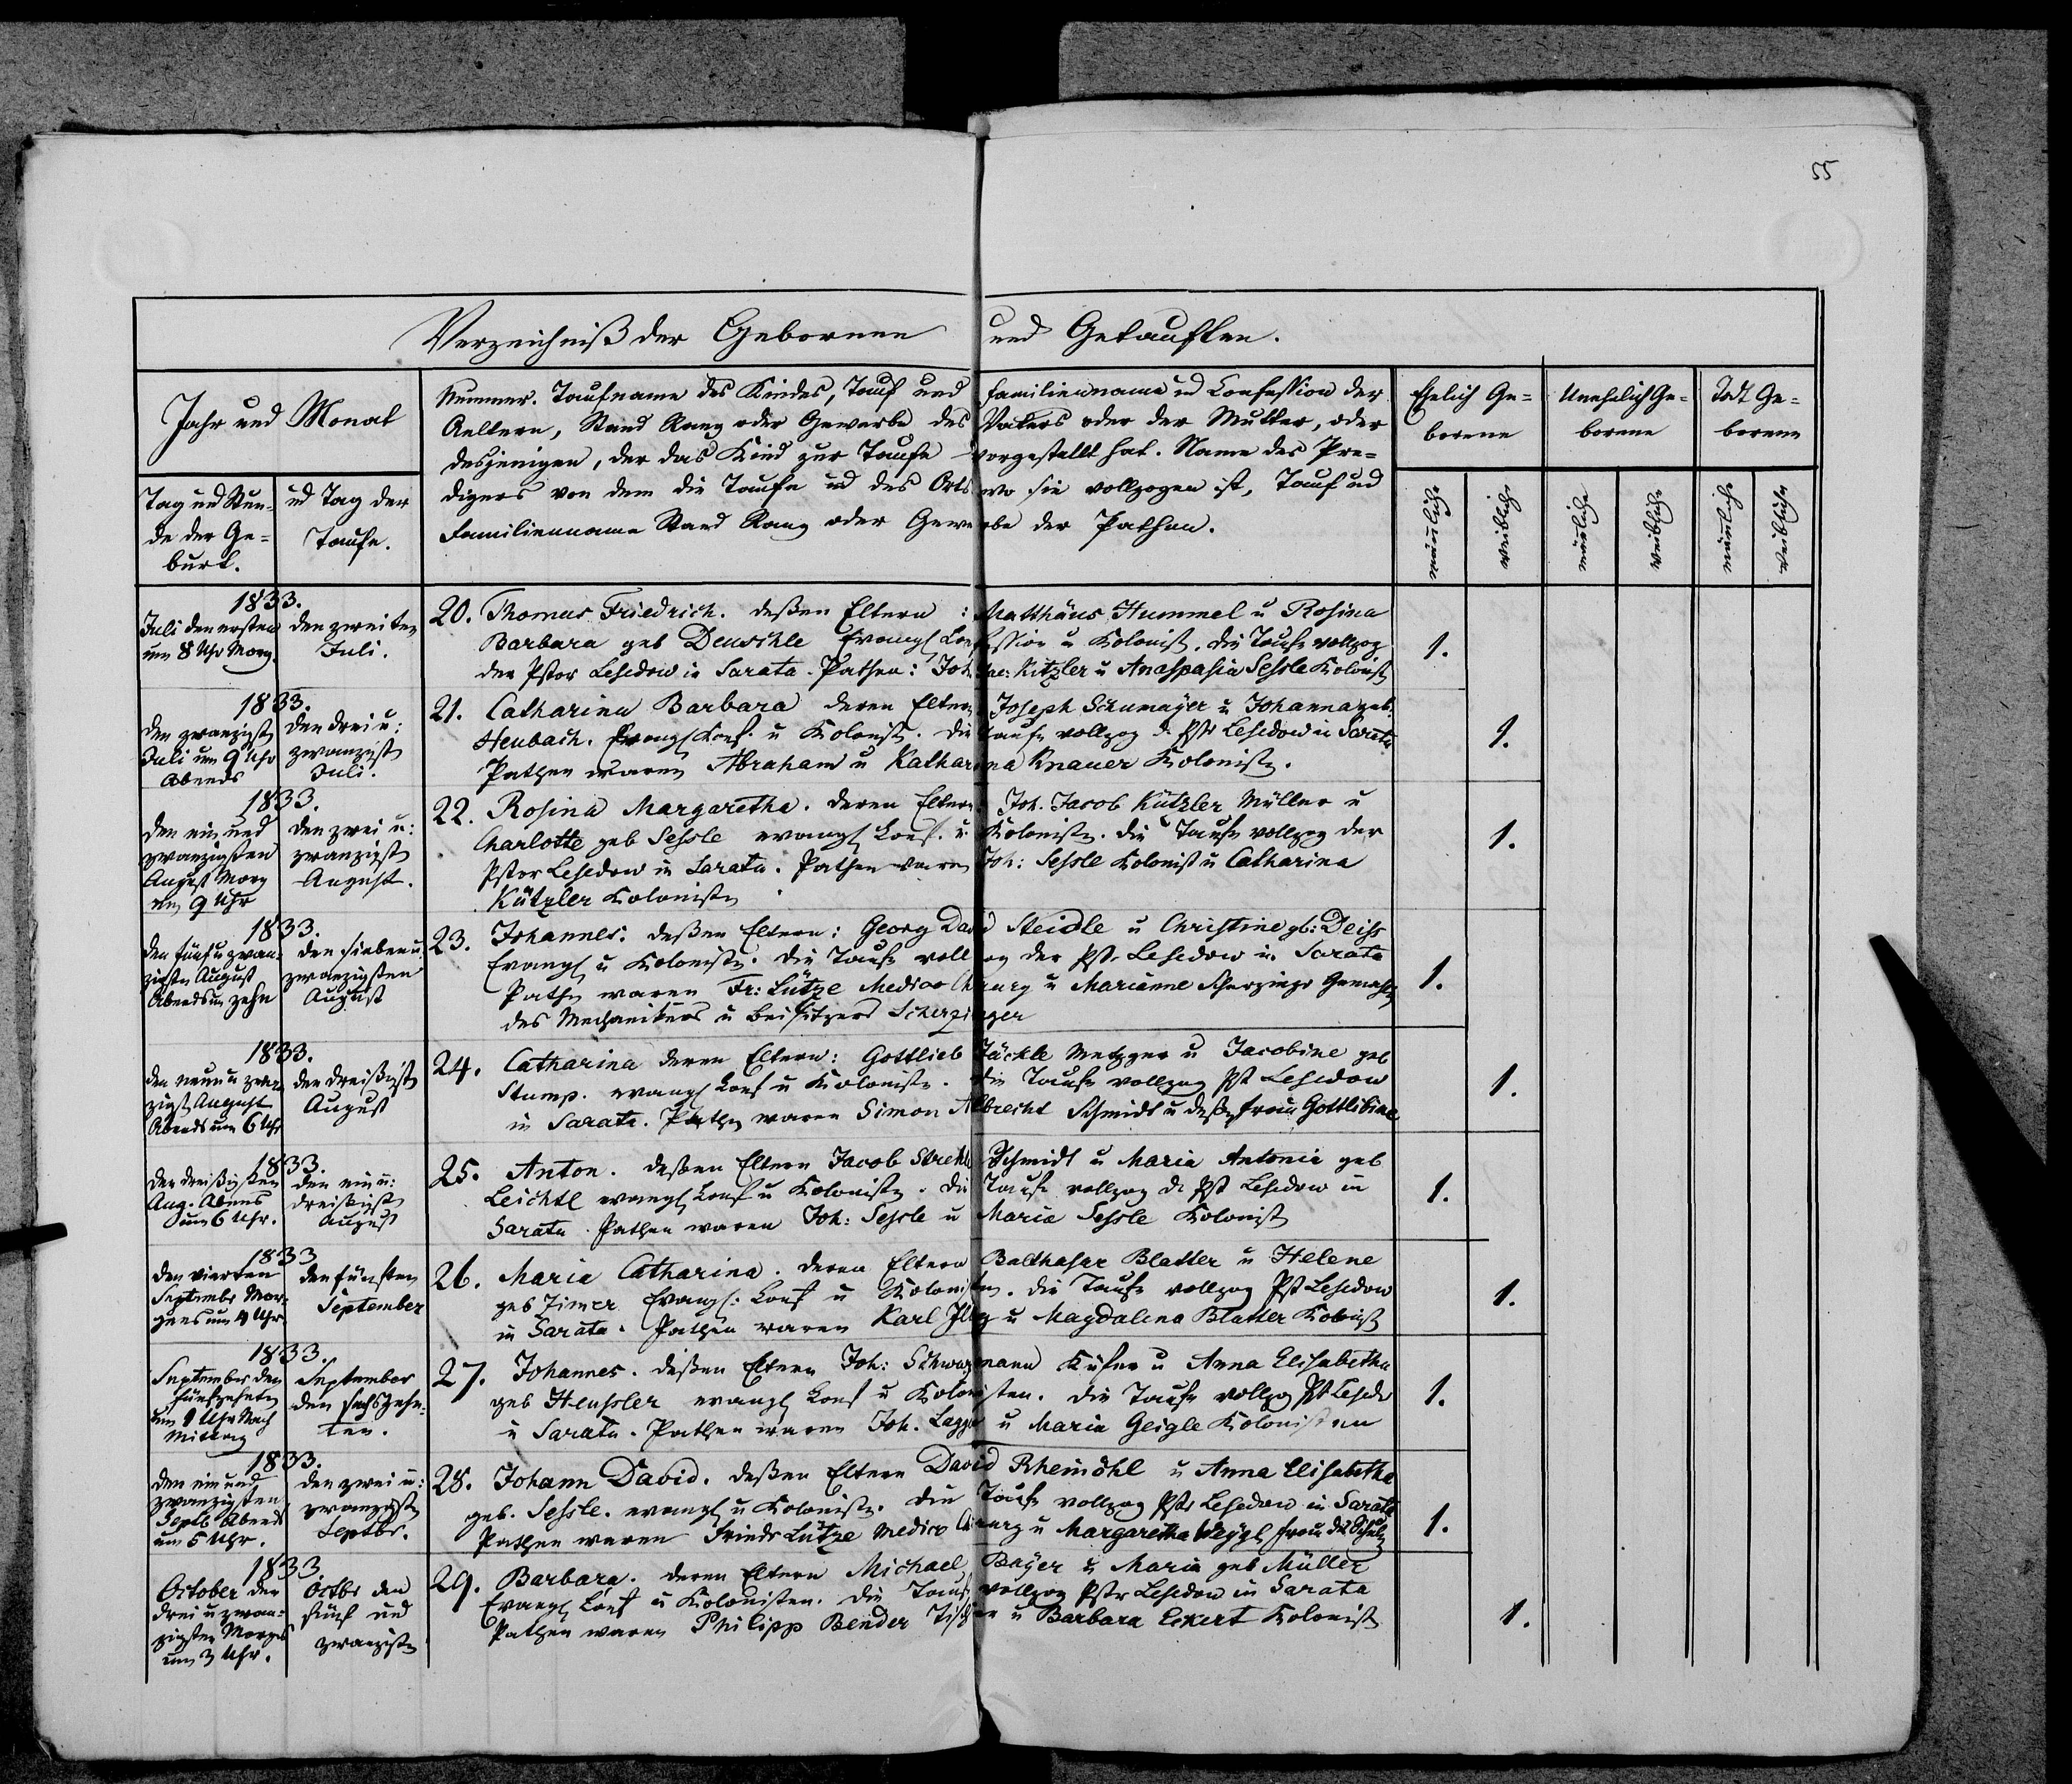 55
Verzeichniß der Gebornen und Getauften.
Jahr und Monat
Tag und Stun-
de der Ge-
burt.
ud Tag der
Taufe.
Nummer. Taufname des Kindes, Tauf und Familienname ud Confession der
Aeltern, Stand Rang oder Gewerbe des Vaters oder der Mutter, oder
desjenigen, der das Kind zur Taufe vorgestellt hat. Name des Pre-
digers von dem die Taufe ud des Orts wo sie vollzogen ist, Tauf ud
Familienname Stand Rang oder Gewerbe der Pathen.
Ehelich Ge-
borene
Unehelich Ge-
borene
Todt Ge-
borene
männliche
weibliche
männliche
weibliche
männliche
weibliche
1833.
Juli den ersten
um 8 Uhr Morg.
den zweiten
Juli.
20. Thomas Friedrich. deßen Eltern: Matthäus Hummel u Rosina
Barbara geb Deuschle Evangl Confession u Kolonist. die Taufe vollzog
der Pstor Lesedow in Sarata. Pathen: Joh. Jac: Kitzler u Anaspasia Sessle Kolonist
1.
1833.
den zwanzigst
Juli um 9 Uhr
Abends
den drei u:
zwanzigst
Juli.
21. Catharina Barbara deren Eltern Joseph Schumayer u Johanna geb.
Heubach. Evangl Conf. u Kolonist. die Taufe vollzog d. Pstr Lesedow in Sarata
Pathen waren Abraham u Katharina Knauer Koloniste.
1.
1833.
den ein und
zwanzigsten
August Morg
um 9 Uhr
den zwei u:
zwanzigst
August.
22. Rosina Margaretha. deren Eltern Joh. Jacob Kützler Müller u
Charlotte geb Sessle evangl Conf. u Koloniste. die Taufe vollzog der
Pstor Lesedow in Sarata. Pathen waren Joh: Sessle Kolonist u Catharina
Kützler Koloniste
1.
1833.
den fünf u zwan-
zigsten August
Abends um zehn
den sieben u.
zwanzigsten
August
23. Johannes. deßen Eltern: Georg David Steidle u Christine gb: Deiss
Evangl u Koloniste. die Taufe vollzog der Pstr Lesedow in Sarata
Pathe waren Fr: Lütze Medico Chirurg u Marianne Scherzinger Gemahlin
des Mechanikers u Beisitzers Scherzinger
1.
1833.
den neun u zwan-
zigst August
Abends um 6 Uhr
den dreißigst
August
24. Catharina deren Eltern: Gottlieb Jäckle Metzger u Jacobine geb
Stump. evangl Conf u Koloniste. die Taufe vollzog Pst Lesedow
in Sarata. Pathe waren Simon Albrecht Schmidt u deßen Frau Gottlibine
1.
1833.
den dreißigsten
Aug. Abens
um 6 Uhr.
den ein u:
dreißigst
August
25. Anton. deßen Eltern Jacob Strehle Schmidt u Maria Antonia geb
Leichtl evangl Conf u Koloniste. die Taufe vollzog d. Pst Lesedow in
Sarata. Pathen waren Joh: Sessle u Maria Sessle Kolonist
1.
1833
den vierten
Septembr Mor-
gens um 4 Uhr
den fünften
September
26. Maria Catharina. deren Eltern Balthasar Blatter u Helene
geb Zimer Evangl: Conf u Kolonisten. die Taufe vollzog Pst Lesedow
in Sarata. Pathen waren Karl Illg u Magdalena Blatter Kolonist
1.
1833.
September den
fünfzehnten
um 1 Uhr Nach
Mittag
September
den sechszehn-
ten.
27. Johannes. deßen Eltern Joh: Schwarzmann Küfer u Anna Elisabetha
geb Heussler evangl Conf u Kolonisten. die Taufe vollzog Pst Lesedo
u Sarata. Pathen waren Joh. Lagger u Maria Geigle Kolonisten
1.
1833.
den ein und
zwanzigsten
Septb Abends
um 5 Uhr.
den zwei u:
zwanzigst
Septbr.
28. Johann David. deßen Eltern David Rheinöhl u Anna Elisabetha
geb. Sessle. evangl u Koloniste. die Taufe vollzog Pstr Lesedow in Sarata
Pathen waren Friedr Lütze Medico Chirurg u Margaretha Weygl Frau ds Schulz
1.
1833
October den
drei u zwan-
zigsten Morgs
um 3 Uhr.
Octbr den
fünf und
zwanzigste
29. Barbara. deren Eltern Michael Bayer u Maria geb Müller
Evangl Conf u Kolonisten. die Taufe vollzog Pstr Lesedow in Sarata
Pathen waren Philipp Bender Tischler u Barbara Eckert Kolonist
1.